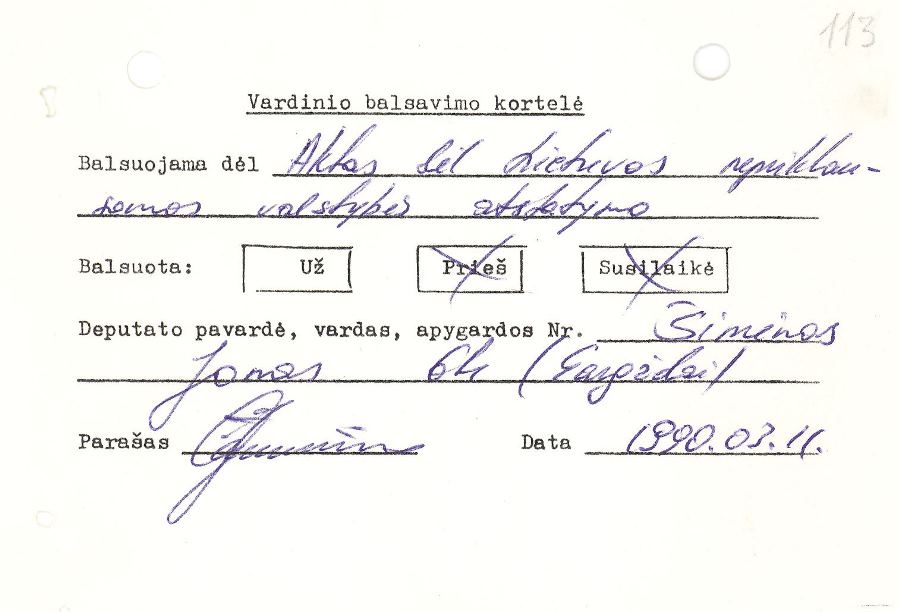 113
Vardinio balsavimo kortelė
Balsuojama dėl Aktas dėl Lietuvos nepriklau-
somos valstybės atstatymo
Balsuota: Už Prieš Susilaikė
Deputato pavardė, vardas, apygardos Nr. Šimėnas
Jonas (Gargždai)
Parašas Data 1990.03.11.